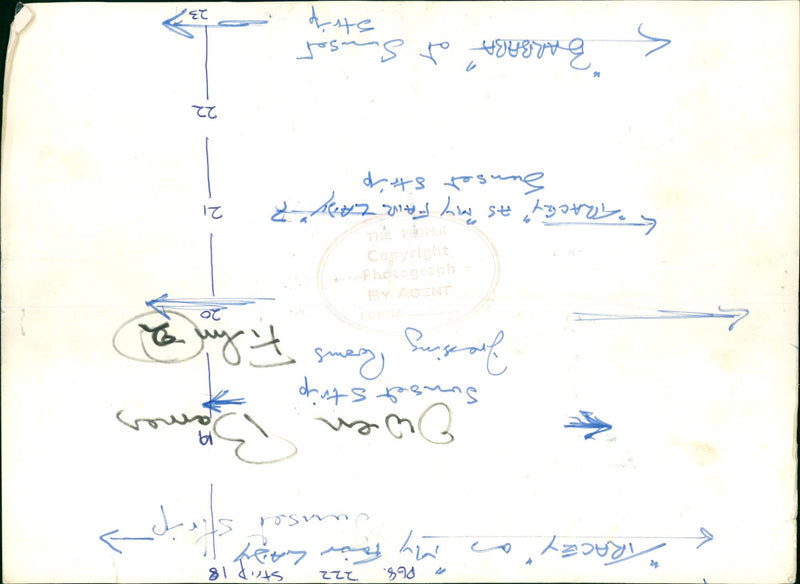 222 Strip 18
"TRACEY" as "My Fair LADY"
Sunset Strip
19
Owen Barnes
Sunset Strip
Dressing Rooms
Film 2
20
THE PEOPLE
Copyright
Photograph
BY AGENT
21
"TRACEY" AS "MY FAIR LADY"?
Sunset Strip
22
"BARBARA" at Sunset
Strip
23